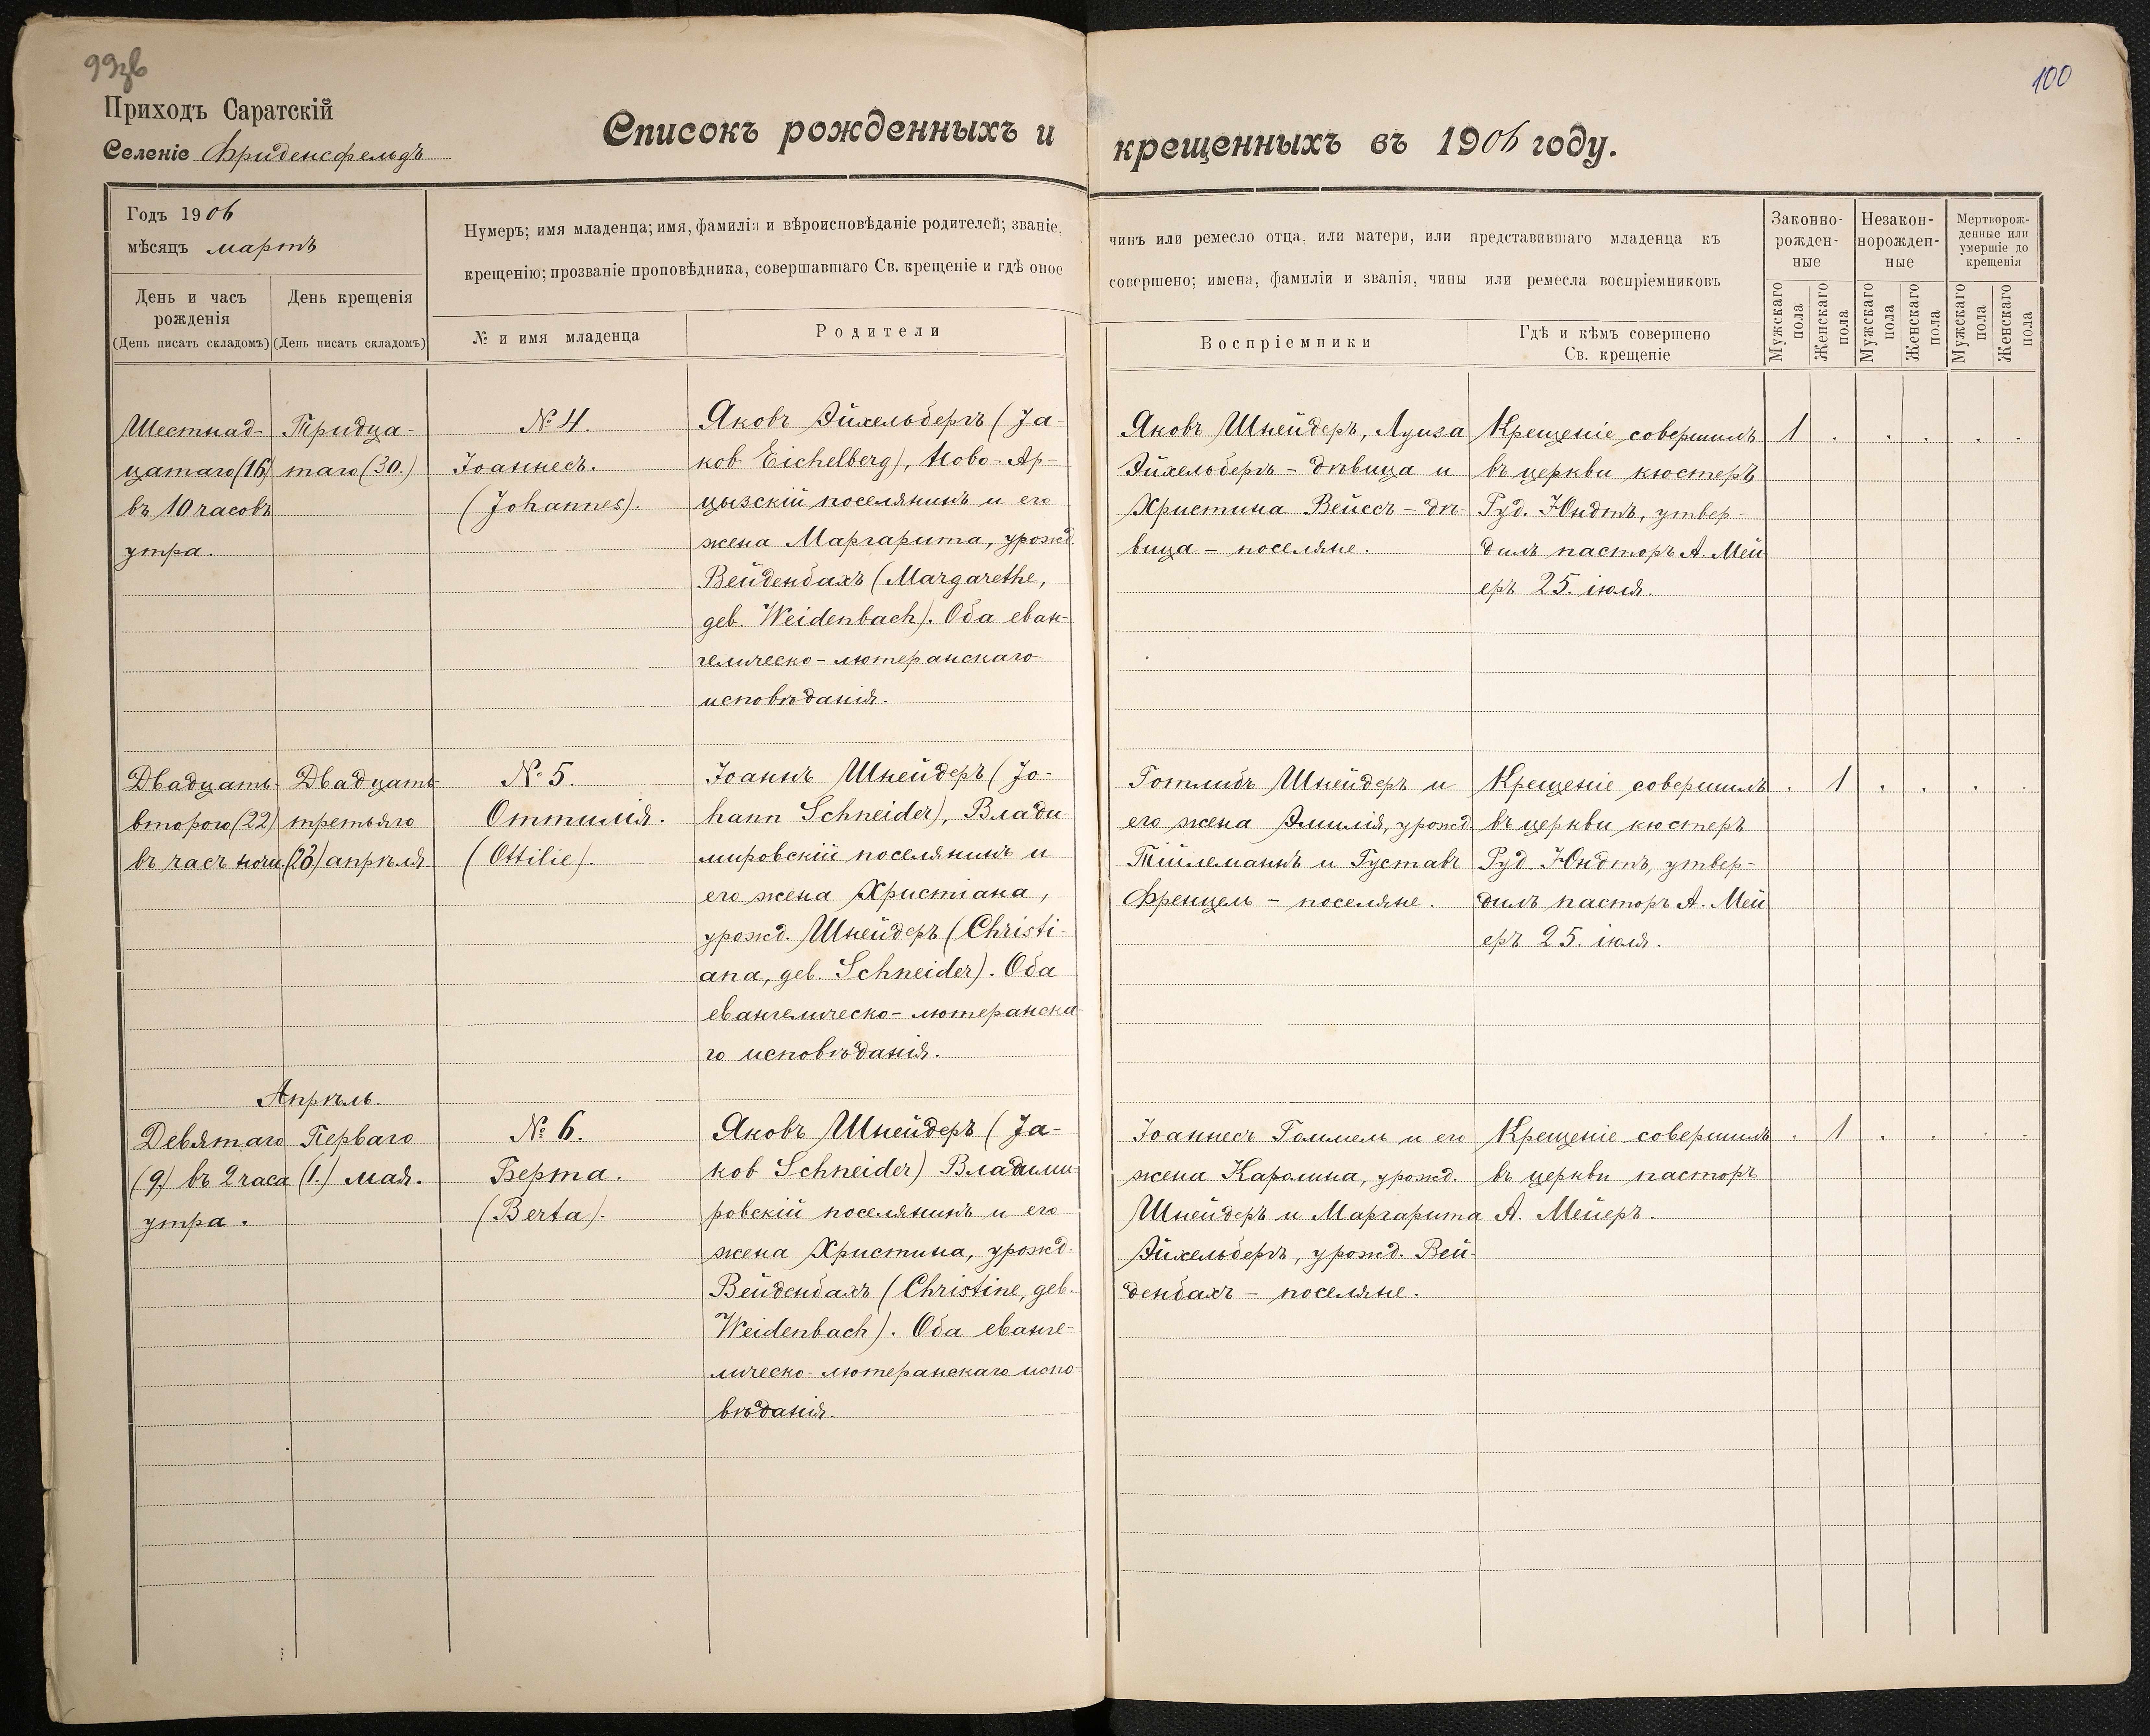 99зв
100
Приходъ Саратскій
Селеніе Фриденсфельдъ
Списокъ рожденныхъ и крещенныхъ въ 1906 году.
Годъ 1906
мѣсяцъ мартъ
День и часъ рожденія
(День писать складомъ)
День крещенія
(День писать складомъ)
Нумеръ; имя младенца; имя, фамилія и вѣроисповѣданіе родителей; званіе, чинъ или ремесло отца, или матери, или представившаго младенца къ
крещенію; прозваніе проповѣдника, совершавшаго Св. крещеніе и гдѣ оное совершено; имена, фамиліи и званія, чины или ремесла воспріемниковъ
№ и имя младенца
Родители
Воспріемники
Гдѣ и кѣмъ совершено
Св. крещеніе
Законно-
рожден-
ные
Незакон-
норожден-
ные
Мертворож-
денные или
умершіе до
крещенія
Мужскаго пола
Женскаго пола
Мужскаго пола
Женскаго пола
Мужскаго пола
Женскаго пола
Шестнад-
цатаго (16)
въ 10 часовъ
утра.
Тридца-
таго (30.)
№ 4.
Іоаннесъ.
(Johannes).
Яковъ Эйхельбергъ (Ja-
kob Eichelberg), Ново-Ар-
цызскій поселянинъ и его
жена Маргарита, урожд.
Вейденбахъ (Margarethe,
geb. Weidenbach). Оба еван-
гелическо-лютеранскаго
исповѣданія.
Яковъ Шнейдеръ, Луиза
Эйхельбергъ - дѣвица и
Христина Вейссъ - дѣ-
вица - поселяне.
Крещеніе совершилъ
въ церкви кюстеръ
Руд. Юндтъ, утвер-
дилъ пасторъ А. Мей
еръ 25. іюля.
1 . . . . .
Двадцать-
второго (22)
въ часъ ночи.
Двадцать-
третьяго
(23) апрѣля.
№ 5.
Оттилія.
(Ottilie).
Іоаннъ Шнейдеръ (Jo-
hann Schneider), Влади-
мировскій поселянинъ и
его жена Христіана,
урожд. Шнейдеръ (Christi-
ana, geb. Schneider). Оба
евангелическо-лютеранска-
го исповѣданія.
Готлибъ Шнейдеръ и
его жена Эмилія, урожд.
Тйлеманнъ и Густавъ
Френцель - поселяне.
Крещеніе совершилъ
въ церкви кюстеръ
Руд. Юндтъ, утвер-
дилъ пасторъ А. Мей
еръ 25. іюля.
. 1 . . . .
Апрѣль.
Девятаго
(9) въ 2 часа
утра.
Перваго
(1.) мая.
№ 6.
Берта.
(Berta).
Яковъ Шнейдеръ (Ja-
kob Schneider) Владими-
ровскій поселянинъ и его
жена Христина, урожд.
Вейденбахъ (Christine, geb.
Weidenbach). Оба еванге-
лическо-лютеранскаго испо-
вѣданія.
Іоаннесъ Голлмель и его
жена Каролина, урожд.
Шнейдеръ и Маргарита
Эйхельбергъ, урожд. Вей-
денбахъ - поселяне.
Крещеніе совершилъ
въ церкви пасторъ
А. Мейеръ.
. 1 . . . .